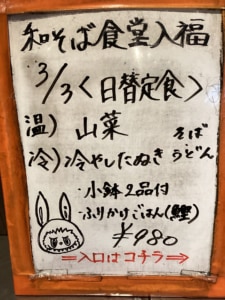 和そば食堂入福
3/3〈日替定食〉
温)山菜 そば
冷)冷やしたぬき うどん
・小鉢2品付
・ふりかけごはん(鰹)
¥980
⇒入口はコチラ⇒